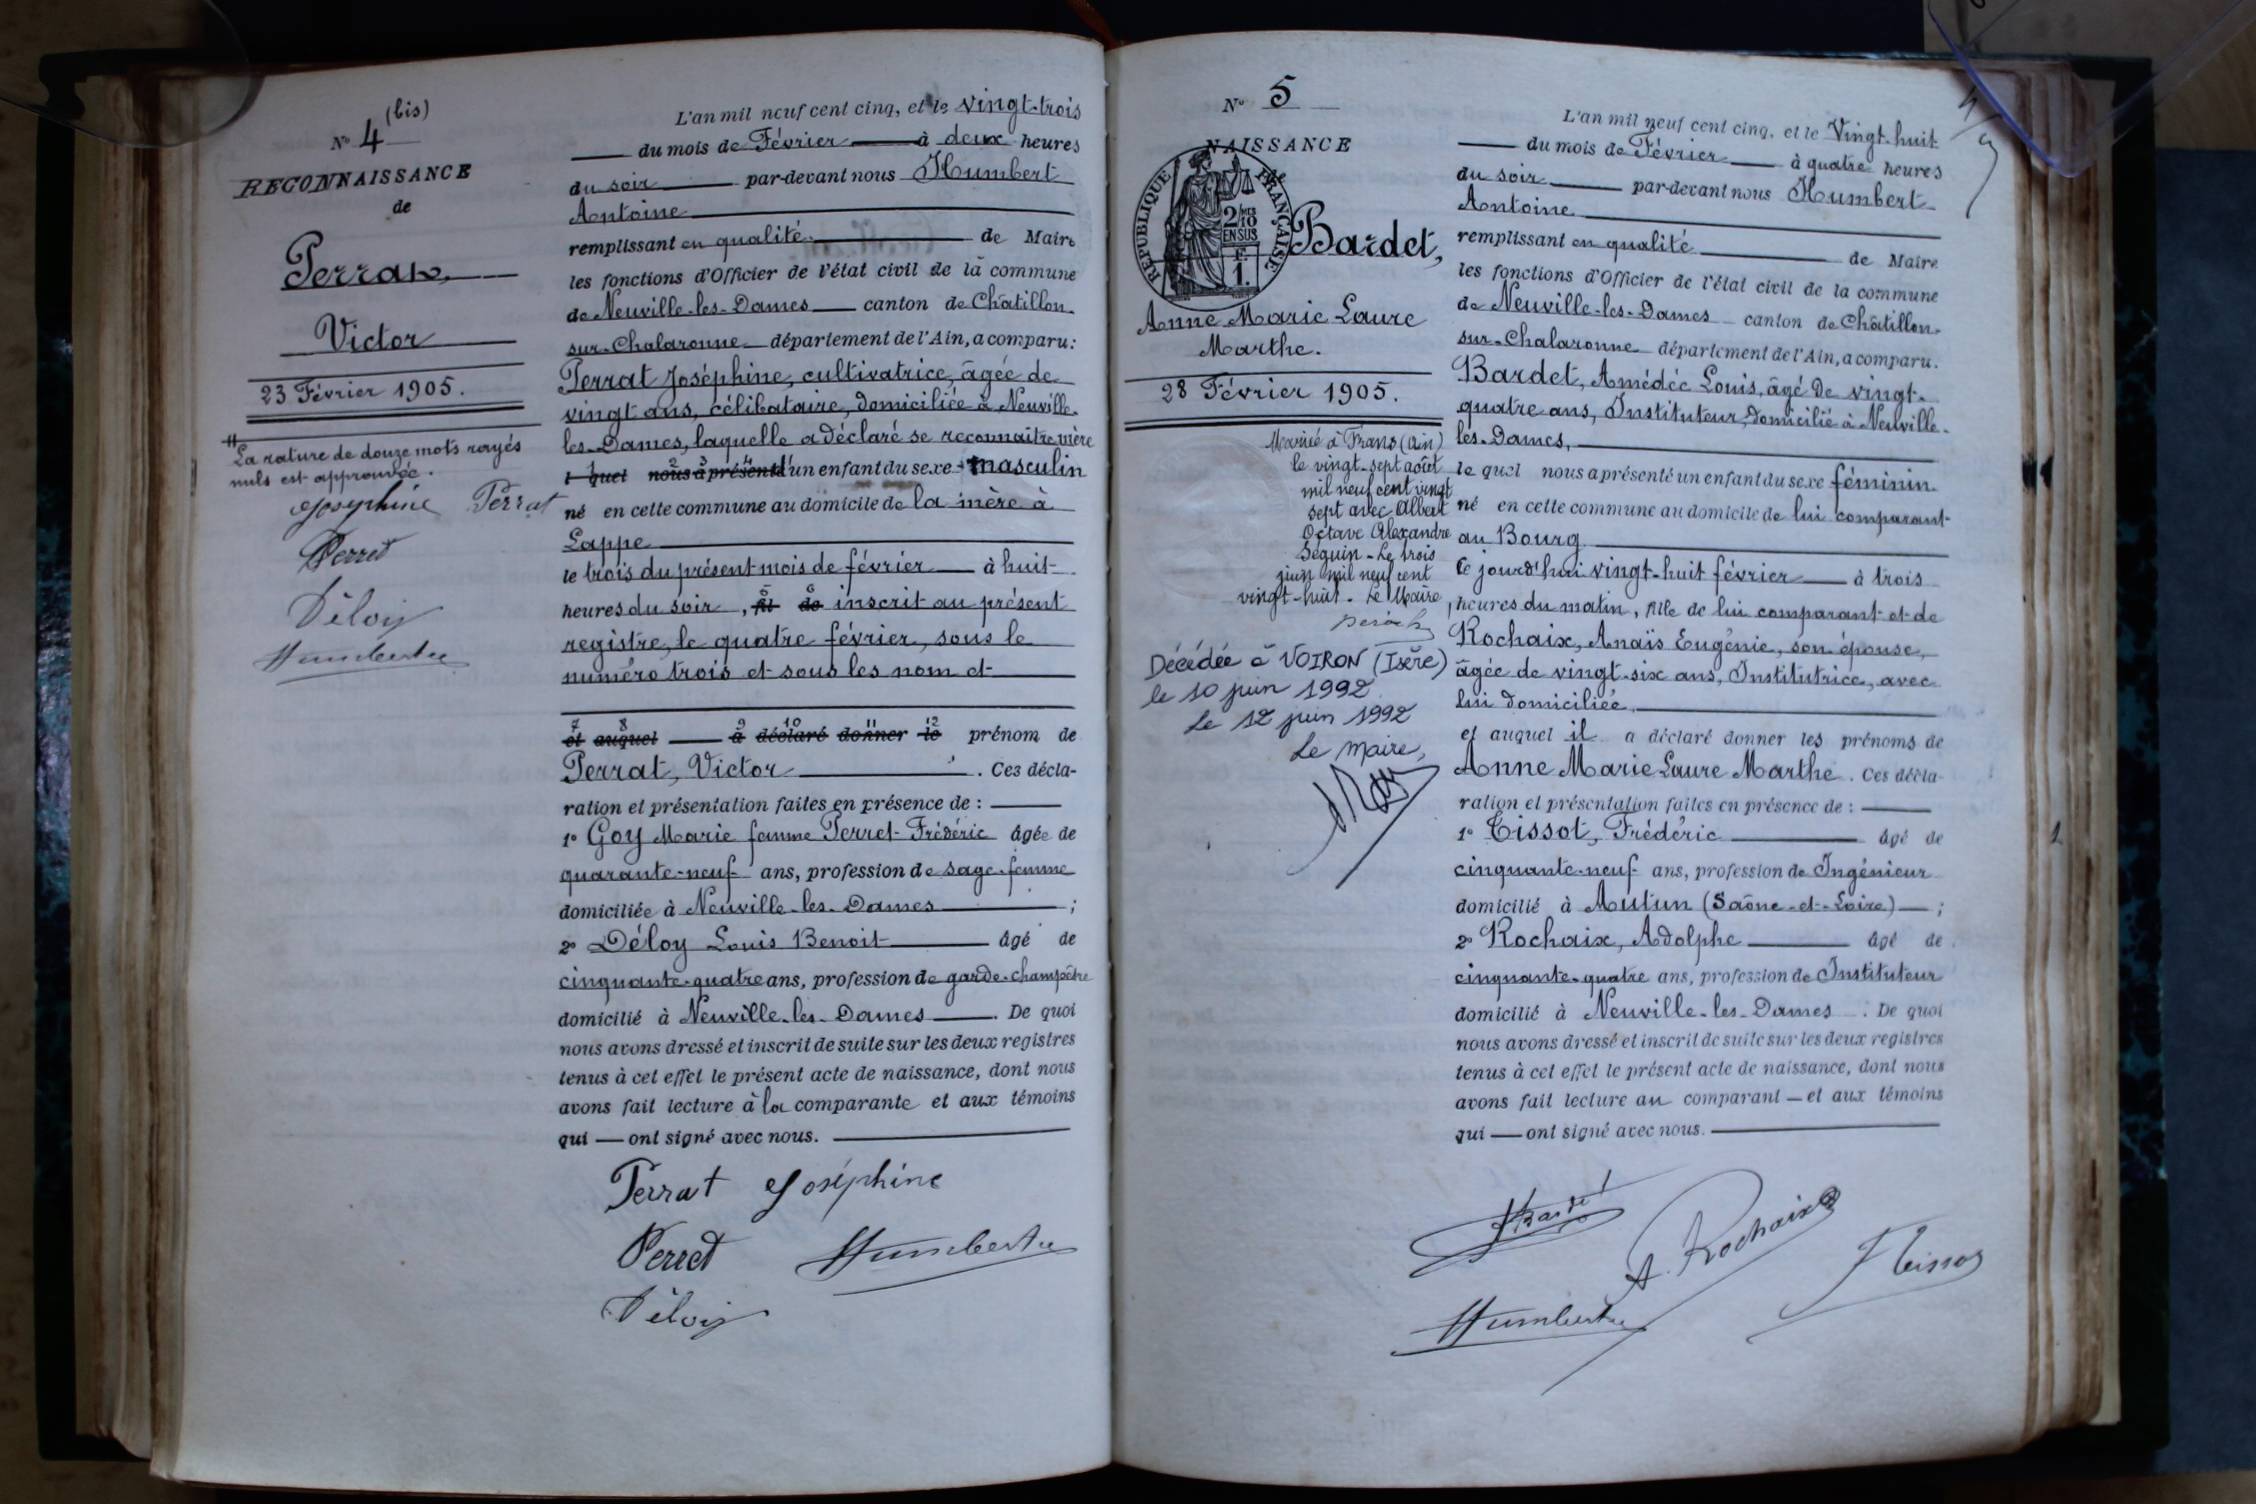 N° 4 (bis)
RECONNAISSANCE
de
Perrat,
Victor
23 Février 1905.
La rature de douze mots rayés
nuls est approuvée.
Joséphine Perrat
Perret
Déloy
Humbert
L'an mil neuf cent cinq, et le vingt-trois
du mois de Février à deux heures
du soir par-devant nous Humbert
Antoine
remplissant en qualité de Maire
les fonctions d'Officier de l'état civil de la commune
de Neuville-les-Dames canton de Châtillon-
sur-Chalaronne département de l'Ain, a comparu:
Perrat Joséphine, cultivatrice, âgée de
vingt ans, célibataire, domiciliée à Neuville-
les-Dames, laquelle a déclaré se reconnaitre mère
l quel nous a présenté d'un enfant du sexe masculin
né en cette commune au domicile de la mère à
Lappe
le trois du présent mois de février à huit
heures du soir, fil de inscrit au présent
registre, le quatre février, sous le
numéro trois et sous les nom et
et auquel a déclaré donner le prénom de
Perrat, Victor. Ces décla-
ration et présentation faites en présence de :
1° Goy Marie femme Perret Frédéric âgée de
quarante-neuf ans, profession de sage-femme
domiciliée à Neuville-les-Dames ;
2° Déloy Louis Benoit âgé de
cinquante-quatre ans, profession de garde-champêtre
domicilié à Neuville-les-Dames. De quoi
nous avons dressé et inscrit de suite sur les deux registres
tenus à cet effet le présent acte de naissance, dont nous
avons fait lecture à la comparante et aux témoins
qui ont signé avec nous.
Perrat Joséphine
Perret Humbert
Déloy
N° 5
NAISSANCE
de
REPUBLIQUE FRANÇAISE
2/10 EN SUS
1 F.
Bardet,
Anne Marie Laure
Marthe.
28 Février 1905.
Mariée à Frans (Ain)
le vingt-sept août
mil neuf cent vingt
sept avec Albert
Octave Alexandre
Séguin - Le trois
juin mil neuf cent
vingt-huit. Le Maire,
Décédée à VOIRON (Isère)
le 10 juin 1992
Le 12 juin 1992
Le Maire,
L'an mil neuf cent cinq, et le Vingt-huit
du mois de Février à quatre heures
du soir par-devant nous Humbert
Antoine
remplissant en qualité de Maire
les fonctions d'Officier de l'état civil de la commune
de Neuville-les-Dames canton de Châtillon-
sur-Chalaronne département de l'Ain, a comparu.
Bardet, Amédée Louis, âgé de vingt-
quatre ans, Instituteur, domicilié à Neuville-
les-Dames,
le quel nous a présenté un enfant du sexe féminin
né en cette commune au domicile de lui comparant
au Bourg
ce jourd'hui vingt-huit février à trois
heures du matin, fille de lui comparant et de
Rochaix, Anaïs Eugénie, son épouse,
âgée de vingt-six ans, Institutrice, avec
lui domiciliée
et auquel il a déclaré donner les prénoms de
Anne Marie Laure Marthe. Ces décla-
ration et présentation faites en présence de :
1° Tissot, Frédéric âgé de
cinquante-neuf ans, profession de Ingénieur
domicilié à Autun (Saône-et-Loire) ;
2° Rochaix, Adolphe âgé de
cinquante-quatre ans, profession de Instituteur
domicilié à Neuville-les-Dames. De quoi
nous avons dressé et inscrit de suite sur les deux registres
tenus à cet effet le présent acte de naissance, dont nous
avons fait lecture au comparant et aux témoins
qui ont signé avec nous.
A. Rochaix
Humbert
Tissot